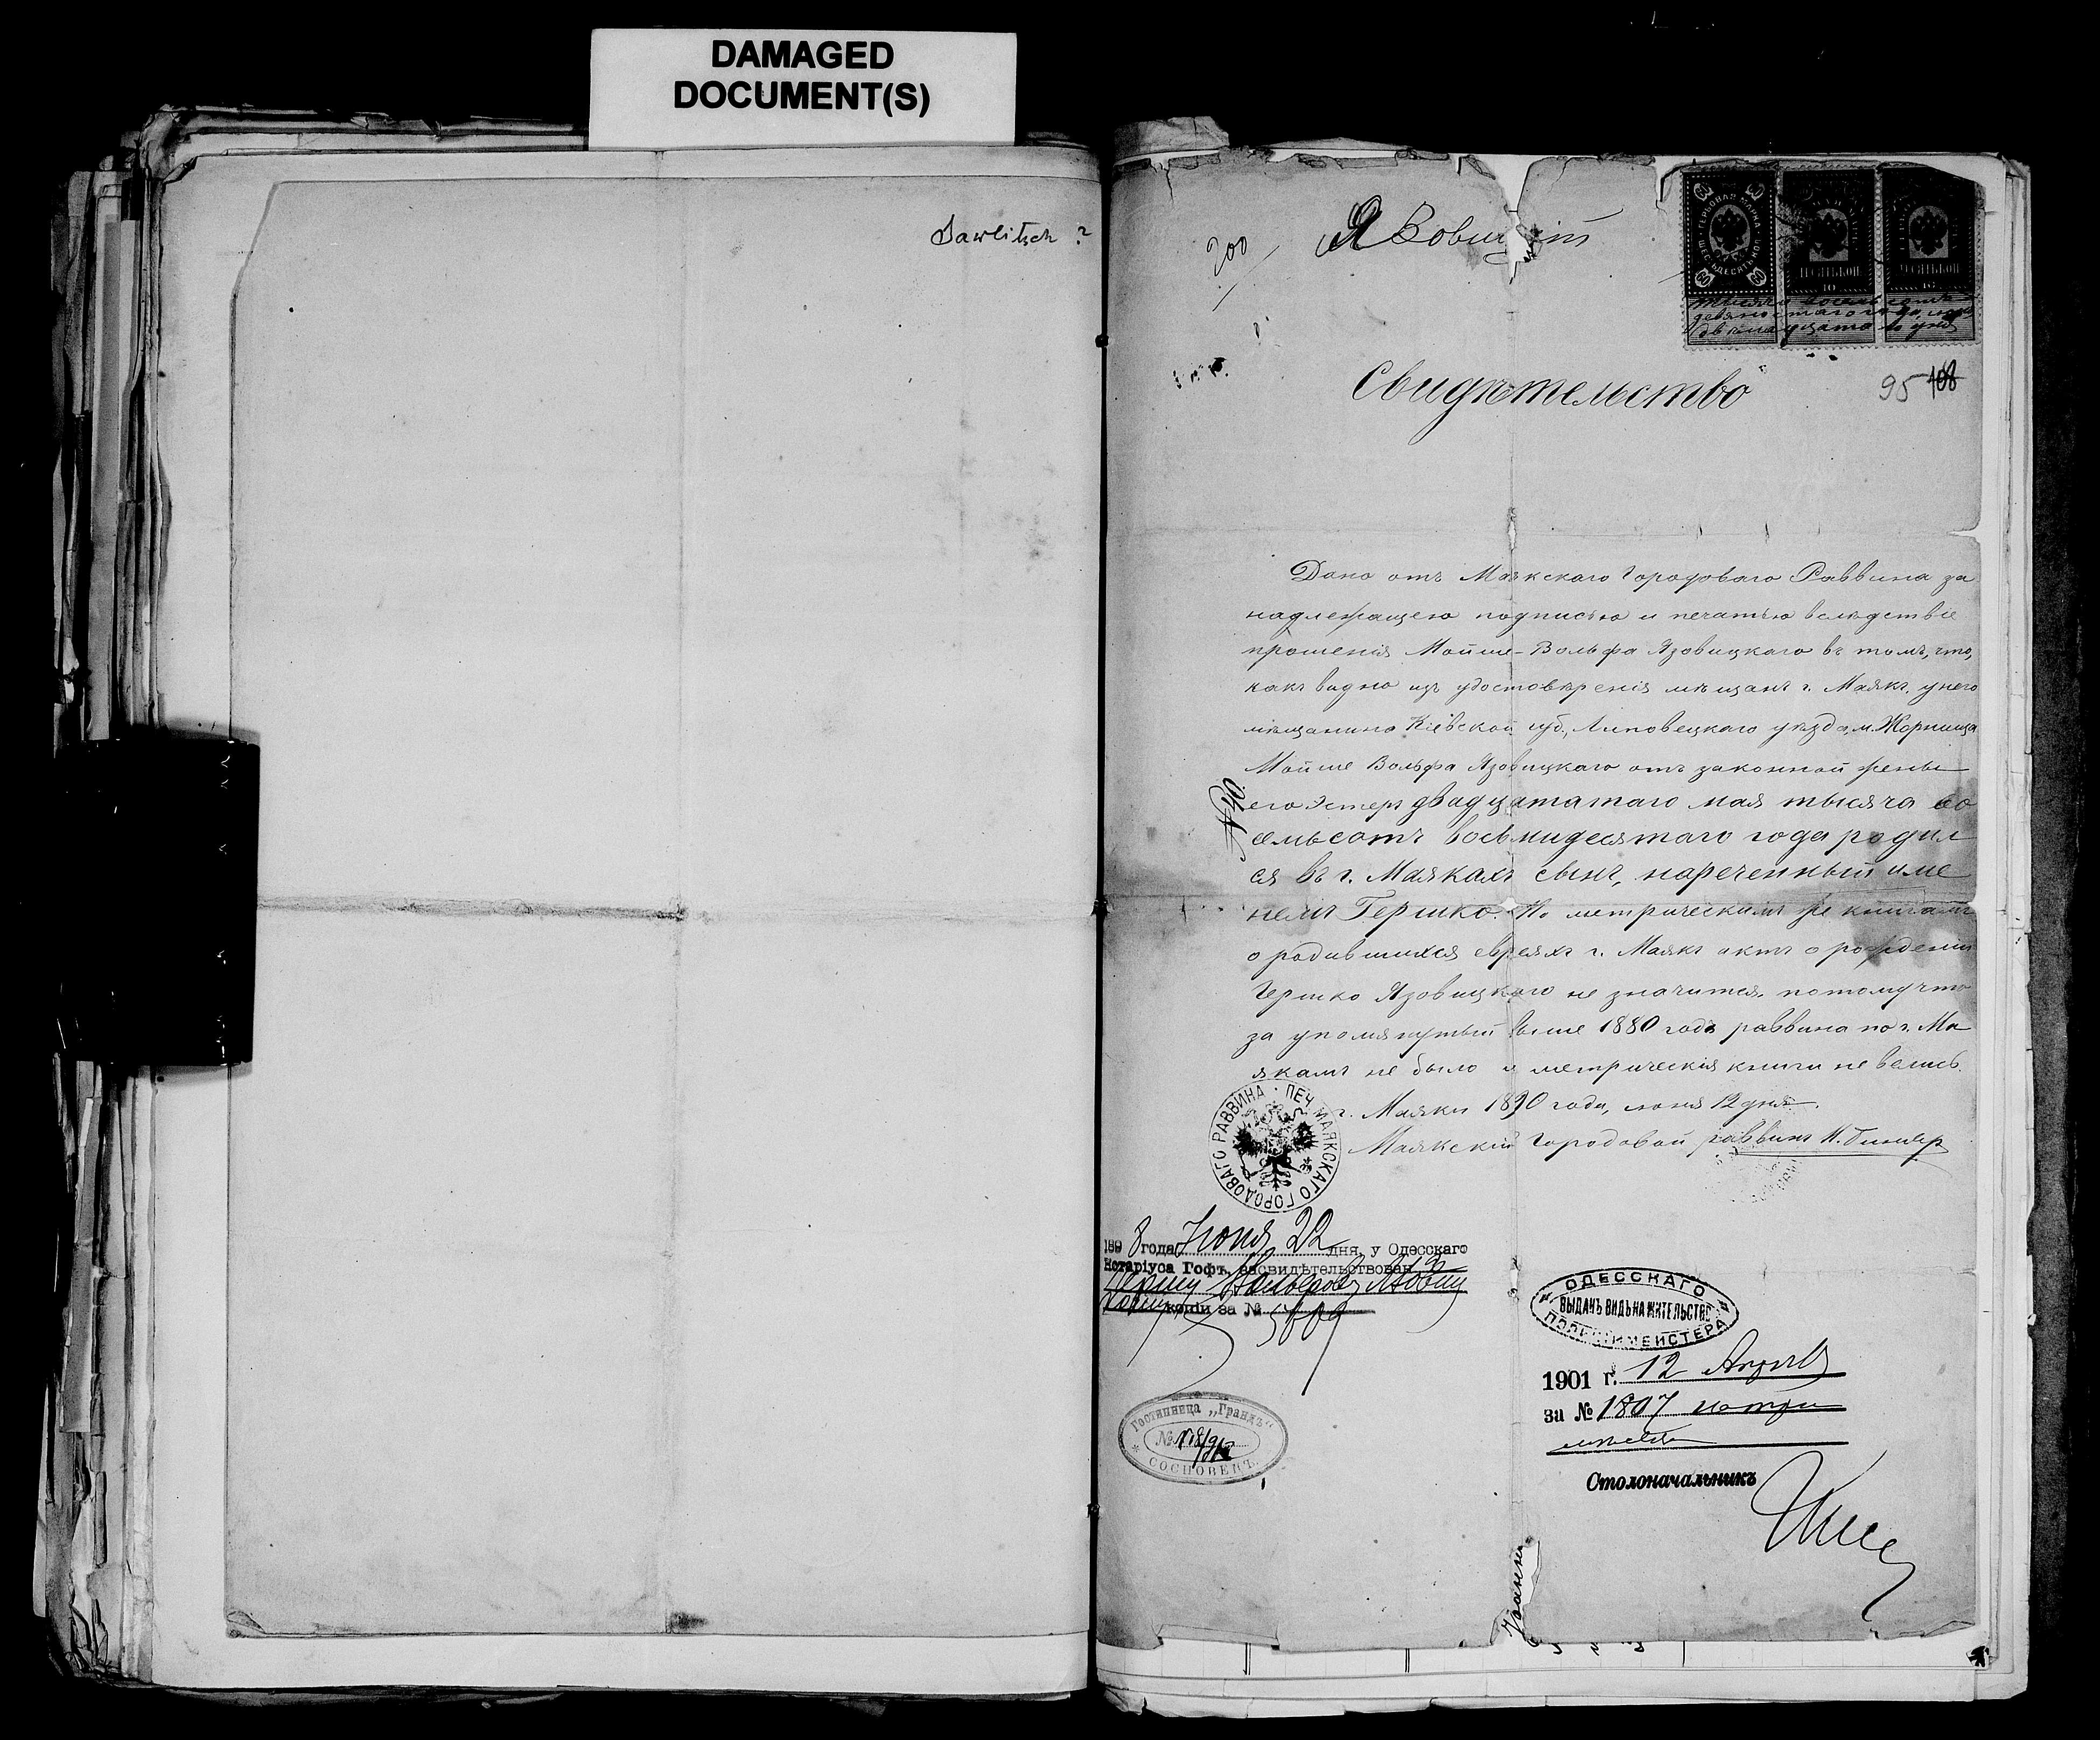 DAMAGED
DOCUMENT(S)
Sawlitsch ?
200
95 108
Свидѣтельство
Дано отъ Маякскаго Городоваго Раввина за
надлежащею подписью и печатью вслѣдствіе
прошенія Мойше-Вольфа Язовицкаго въ томъ, что,
какъ видно изъ удостовѣренія мѣщанъ г. Маякъ, у него
мѣщанина Кіевской губ., Липовецкаго уѣзда, м. Жорнища
Мойше Вольфа Язовицкаго отъ законной жены
его Эстеръ двадцататаго мая тысяча во
семьсотъ восьмидесятаго года родил
ся въ г. Маякахъ сынъ, нареченный име
немъ Гершко. По метрическимъ же книгамъ
о родившихся евреяхъ г. Маякъ актъ о рожденіи
Гершко Язовицкаго не значится, потому что
за упомянутый выше 1880 годъ раввина по г. Ма
якамъ не было и метрическія книги не велись.
г. Маяки 1890 года, іюня 12 дня.
Маякскій Городовой раввинъ
ПЕЧ. МАЯКСКАГО ГОРОДОВАГО РАВВИНА
1898 года Іюня 22 дня, у Одесскаго
Нотаріуса Гофъ, засвидѣтельствован
копіи за №
ОДЕССКАГО
ВЫДАНЪ ВИДЪ НА ЖИТЕЛЬСТВО
ПОЛИЦІЙМЕЙСТЕРА
1901 г. 12 Апрѣля
за № 1807 на три
мѣсяца
Столоначальникъ
Гостинница „Грандъ"
№
СОСНОВЕЦЪ